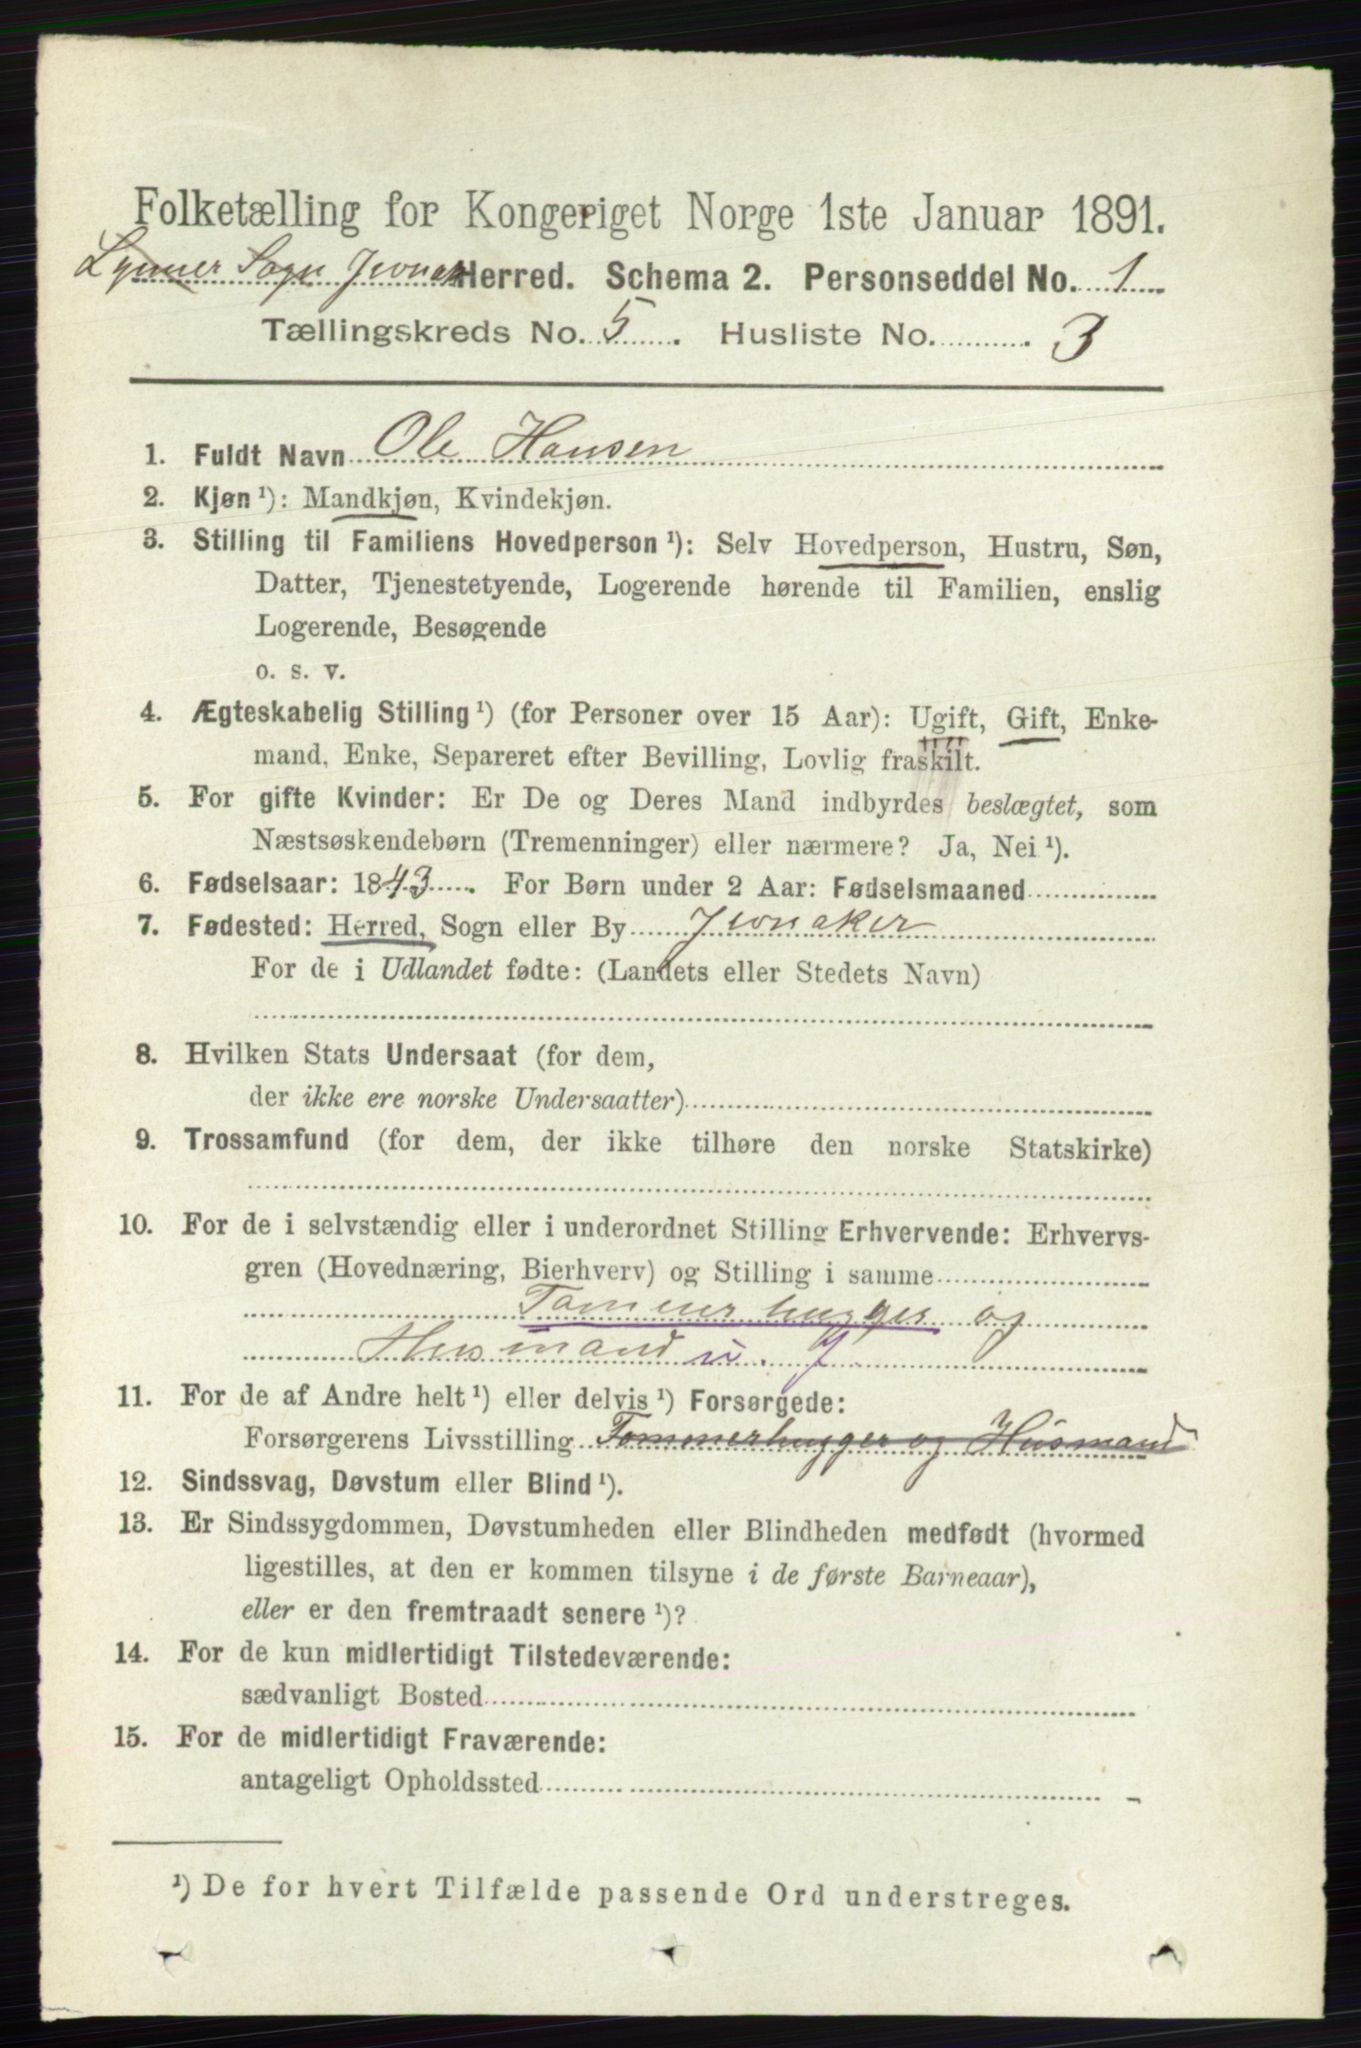 Folketælling for Kongeriget Norge 1ste Januar 1891.
Lynner Sogn Jevnak Herred. Schema 2. Personseddel No. 1
Tællingskreds No. 5. Husliste No. 3
1. Fuldt Navn Ole Hansen
2. Kjøn ¹): Mandkjøn, Kvindekjøn.
3. Stilling til Familiens Hovedperson ¹): Selv Hovedperson, Hustru, Søn,
Datter, Tjenestetyende, Logerende hørende til Familien, enslig
Logerende, Besøgende
o. s. v.
4. Ægteskabelig Stilling ¹) (for Personer over 15 Aar): Ugift, Gift, Enke-
mand, Enke, Separeret efter Bevilling, Lovlig fraskilt.
5. For gifte Kvinder: Er De og Deres Mand indbyrdes beslægtet, som
Næstsøskendebørn (Tremenninger) eller nærmere? Ja, Nei ¹).
6. Fødselsaar: 1843. For Børn under 2 Aar: Fødselsmaaned
7. Fødested: Herred, Sogn eller By Jevnaker
For de i Udlandet fødte: (Landets eller Stedets Navn)
8. Hvilken Stats Undersaat (for dem,
der ikke ere norske Undersaatter)
9. Trossamfund (for dem, der ikke tilhøre den norske Statskirke)
10. For de i selvstændig eller i underordnet Stilling Erhvervende: Erhvervs-
gren (Hovednæring, Bierhverv) og Stilling i samme
Tømmerhugger og
Husmand u. J.
11. For de af Andre helt ¹) eller delvis ¹) Forsørgede:
Forsørgerens Livsstilling Tømmerhugger og Husmand
12. Sindssvag, Døvstum eller Blind ¹).
13. Er Sindssygdommen, Døvstumheden eller Blindheden medfødt (hvormed
ligestilles, at den er kommen tilsyne i de første Barneaar),
eller er den fremtraadt senere ¹)?
14. For de kun midlertidigt Tilstedeværende:
sædvanligt Bosted
15. For de midlertidigt Fraværende:
antageligt Opholdssted
¹) De for hvert Tilfælde passende Ord understreges.